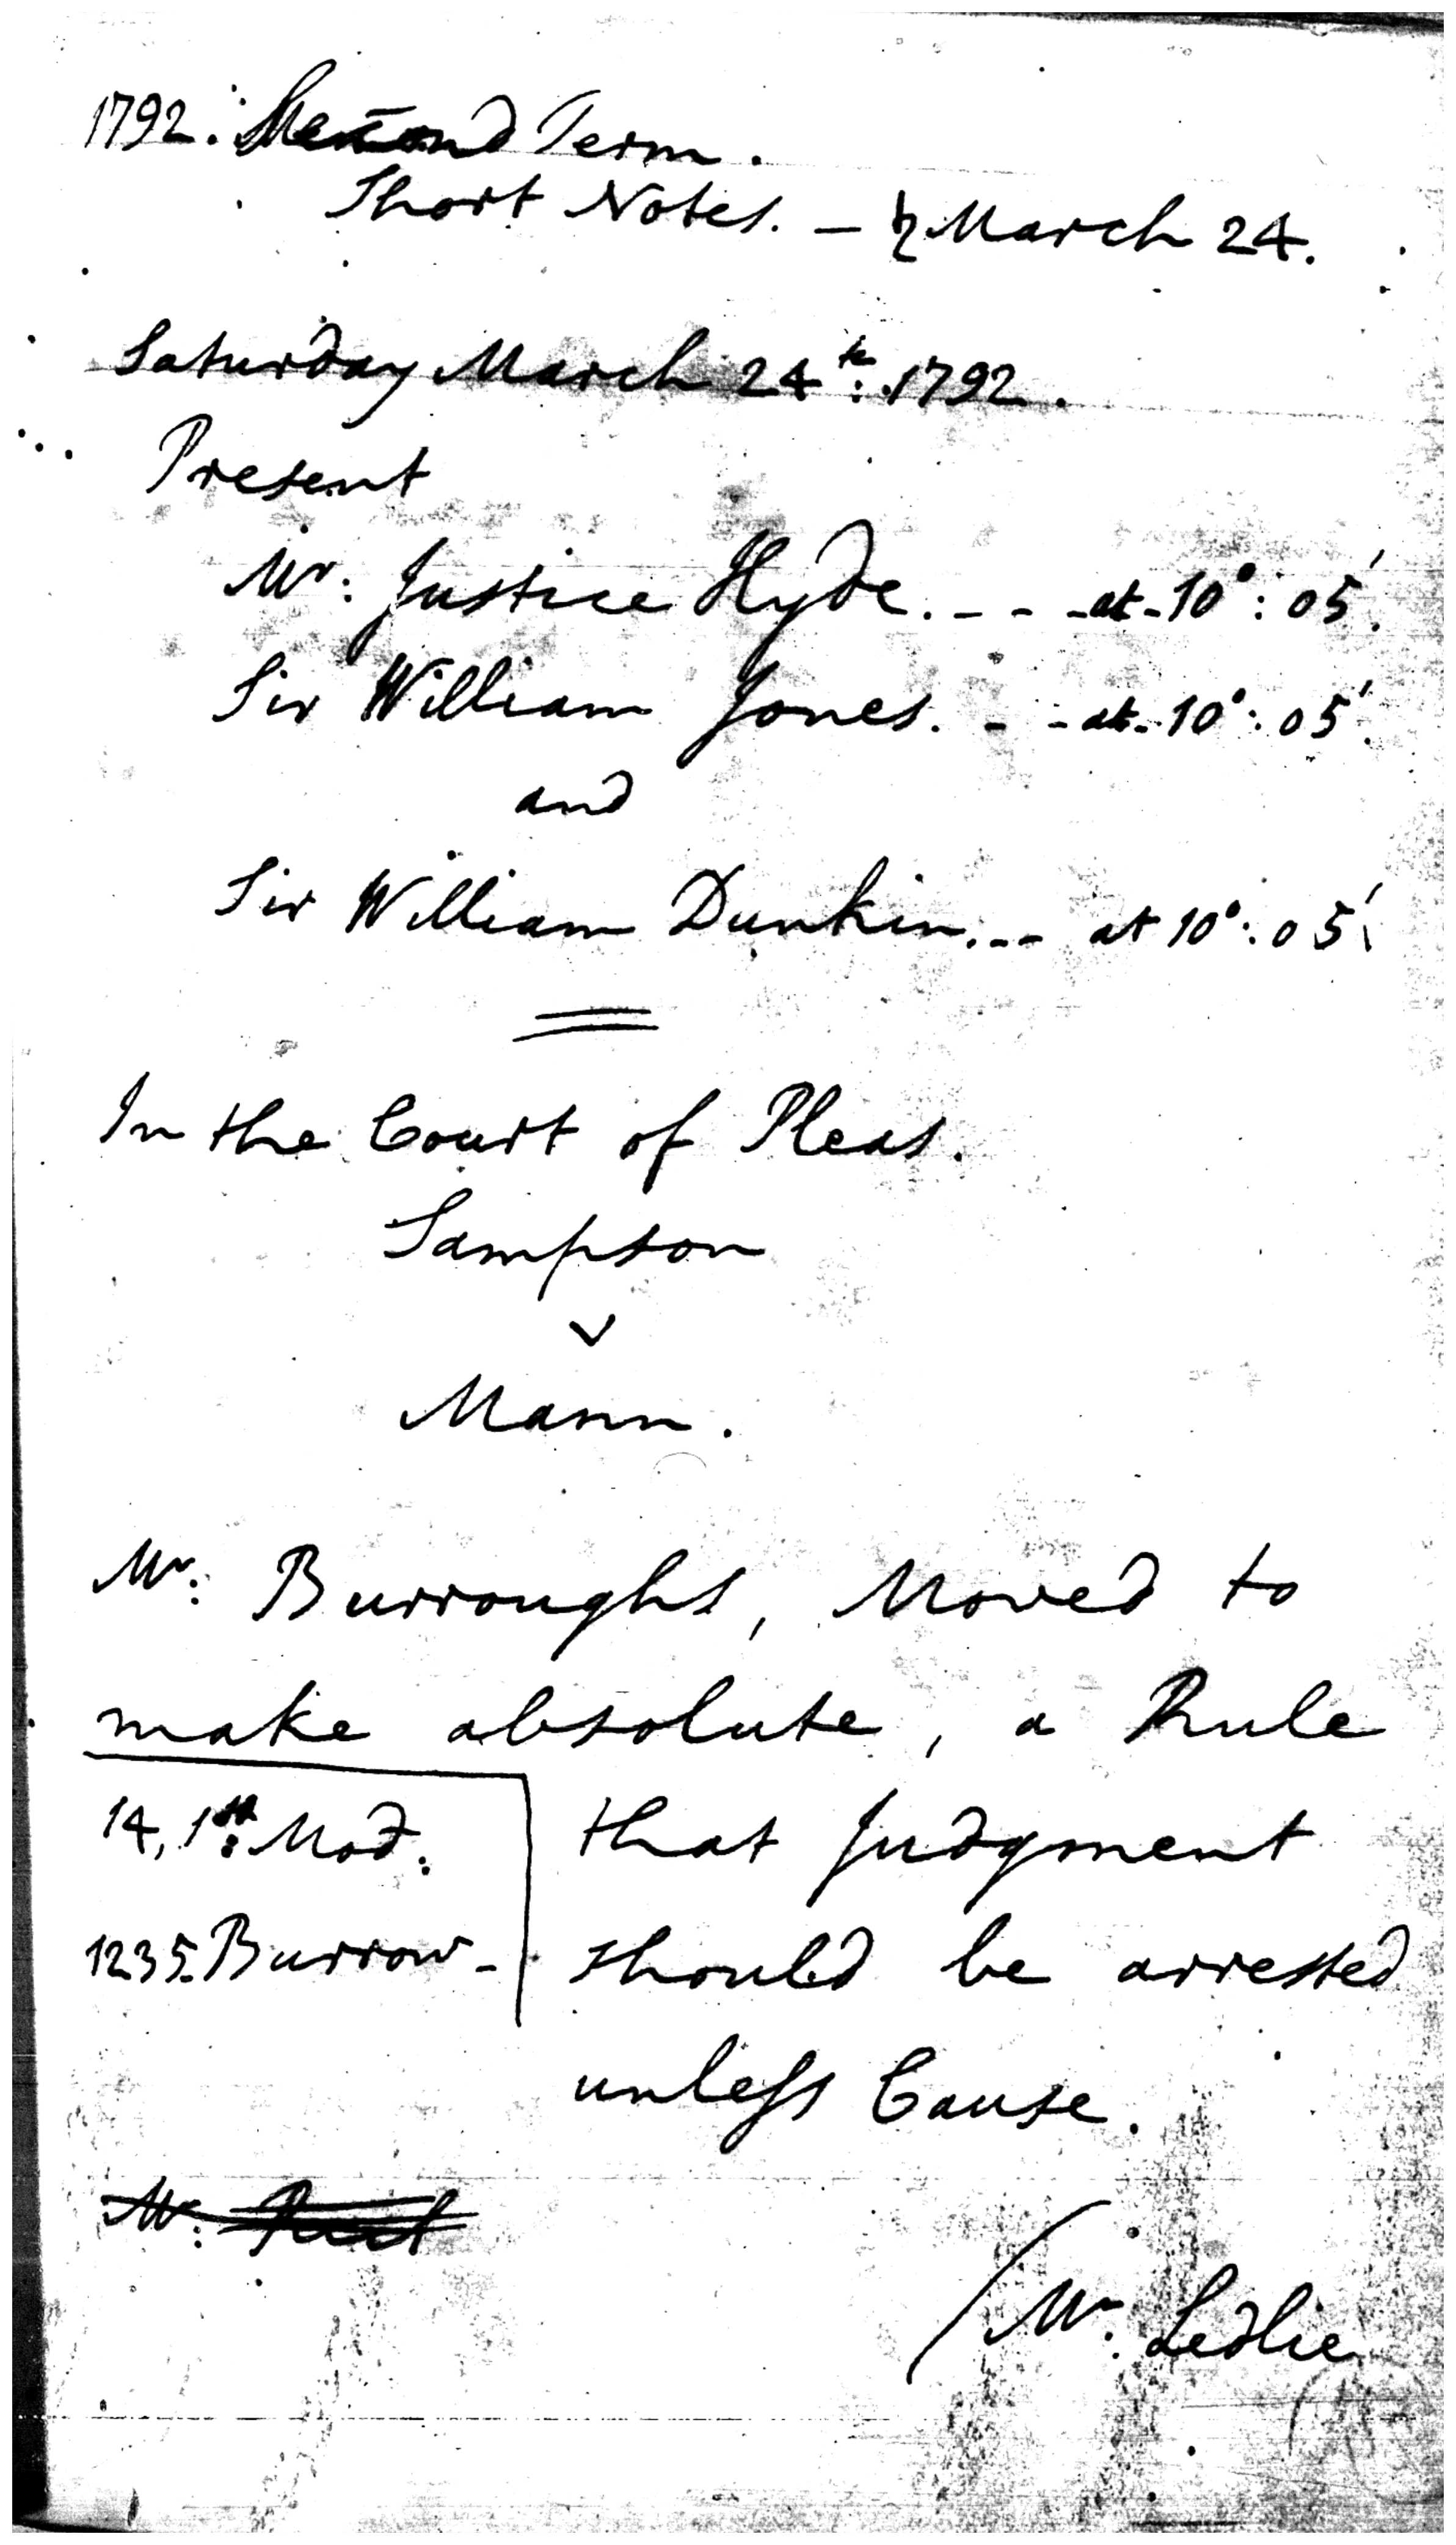 1792. Second Term.
Short Notes. — ♄ March 24.
Saturday March 24th: 1792.
Present
Mr: Justice Hyde. - - - at - 10°: 05'.
Sir William Jones. - - at - 10°: 05'.
and
Sir William Dunkin. - - at 10°: 05'.
In the Court of Pleas.
Sampson
v
Mann.
Mr: Burroughs, Moved to
make absolute, a Rule
14, 1st: Mod:
that Judgment
1235. Burrow -
should be arrested
unless Cause.
Mr:
Mr: Ledlie